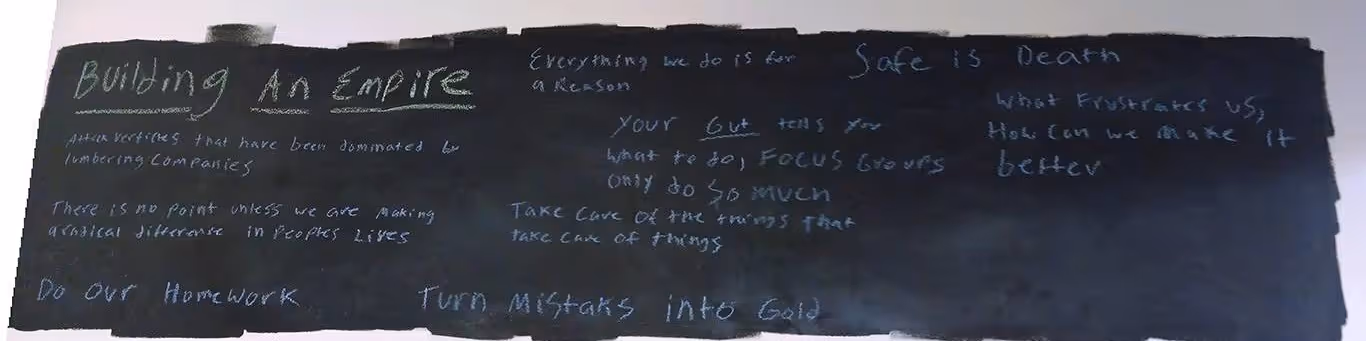 Building An Empire
Attack verticles that have been dominated by
lumbering companies
There is no point unless we are making
a radical difference in Peoples Lives
Do our Homework
Everything we do is for
a Reason
Your Gut tells you
what to do, Focus Groups
only do so much
Take care of the things that
take care of things
Turn Mistaks into Gold
Safe is Death
What Frustrates us,
How can we make it
better